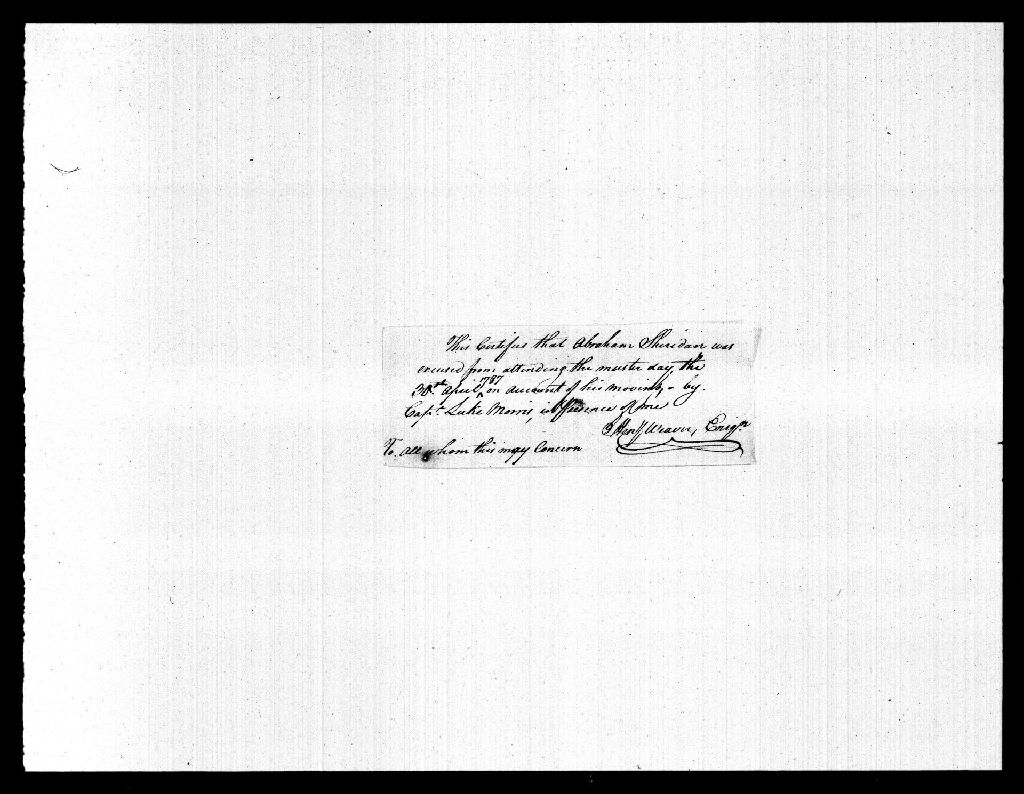 This Certifies that Abraham Sheridan was
excused from attending the muster day the
30th. April 1787 on account of his moving - by
Capt. Luke Morris, in Presence of me
Weaver, Ensign
To all whom this may Concern